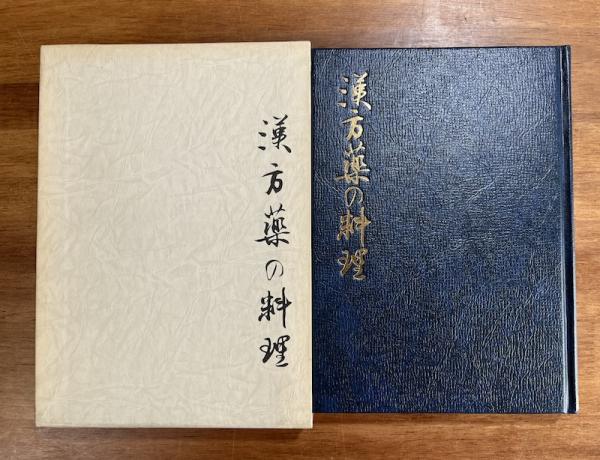 漢方薬の料理
漢方薬の料理